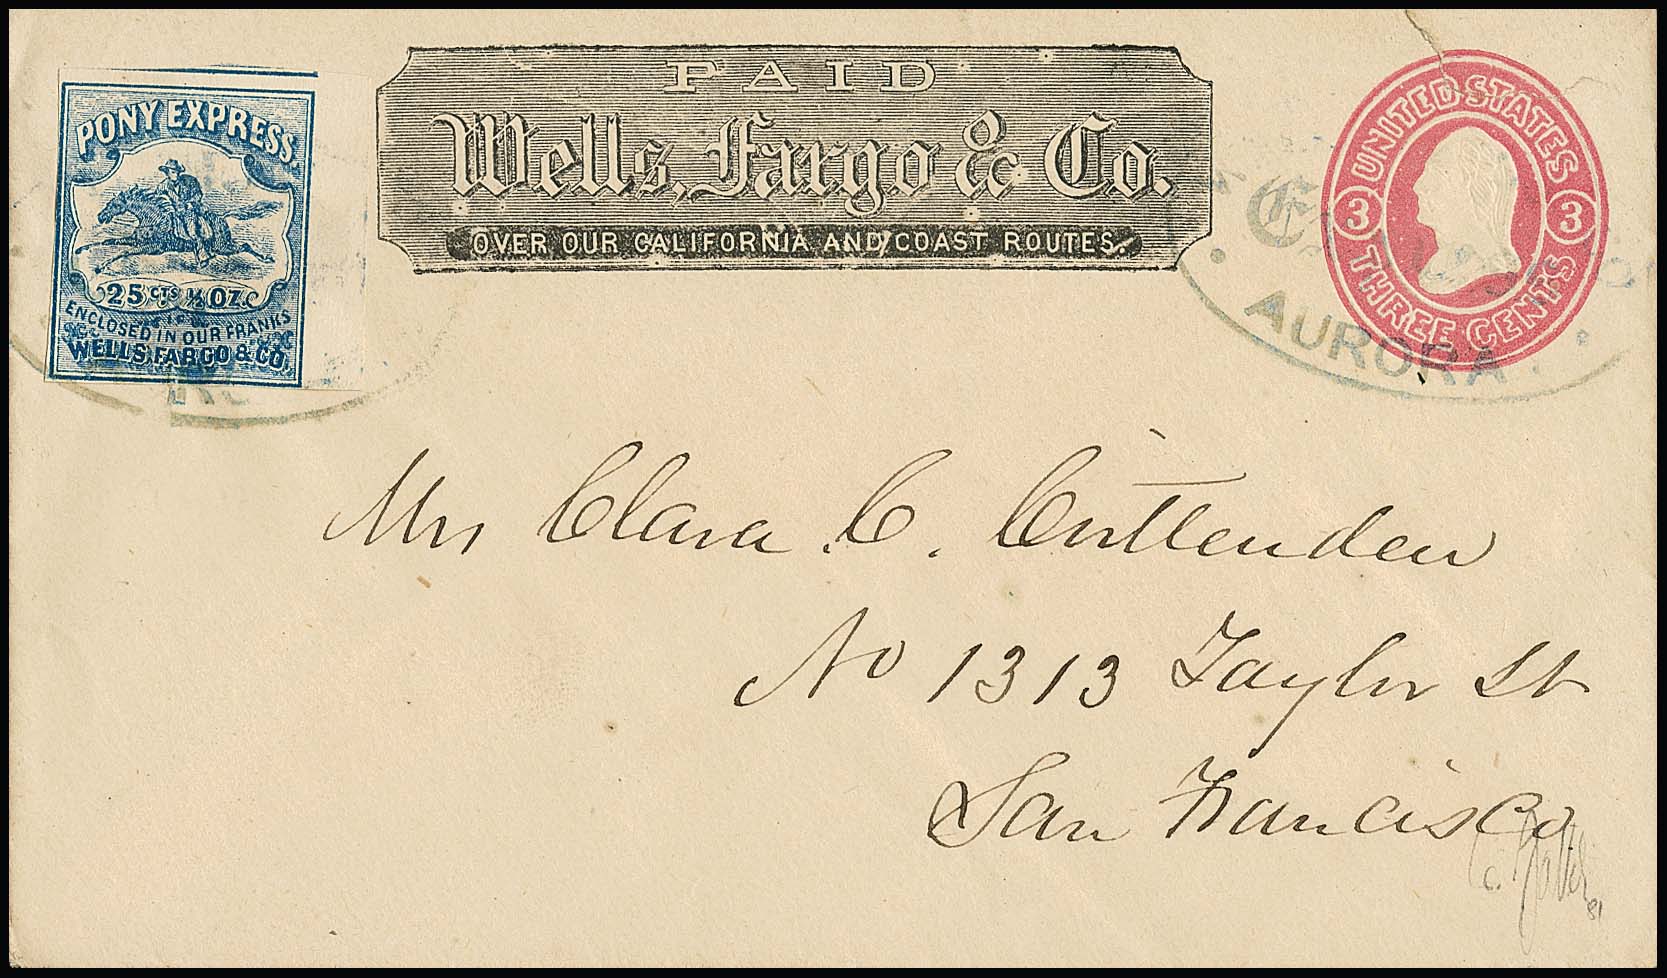 PONY EXPRESS.
25 CTS ½ OZ.
ENCLOSED IN OUR FRANKS
WELLS, FARGO & CO.
PAID
Wells, Fargo & Co.
OVER OUR CALIFORNIA AND COAST ROUTES.
UNITED STATES
3 3
THREE CENTS
AURORA
Mrs Clara C. Crittenden
No 1313 Taylor St
San Francisco